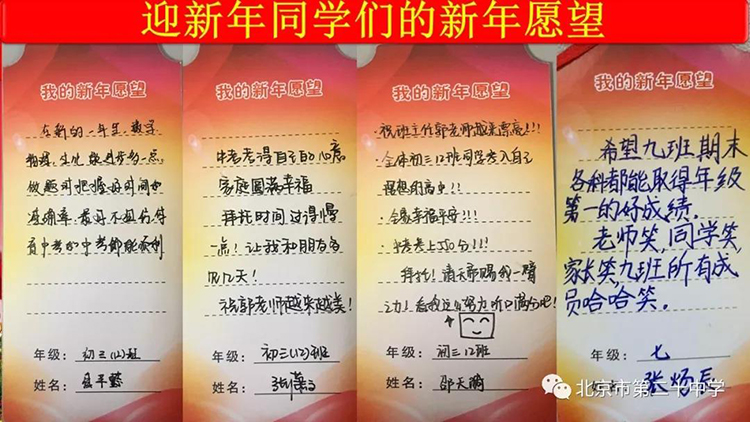 迎新年同学们的新年愿望
我的新年愿望
在新的一年里,数学
物理、生化能进步多一点,
做题时把握好时间和
准确率,最好不
中考
年级:初三(12)班
姓名:
我的新年愿望
中考考得自己的心意
家庭圆满幸福
拜托时间过得慢
一点!让我和朋友多
见几天!
祝郭老师越来越美!
年级:初三(12)班
姓名:
我的新年愿望
·祝班主任郭老师越来漂亮!!!
·全体初三12班同学考入自己
理想的高中!!
·全家幸福平安!!!
·中考考上
拜托!请天帝赐我一臂
之力!看我这么努力
年级:初三12班
姓名:邵天
我的新年愿望
希望九班期末
各科都能取得年级
第一的好成绩.
老师笑,同学笑,
家长笑,九班所有成
员哈哈笑.
年级:七
张炀
北京市第二十中学